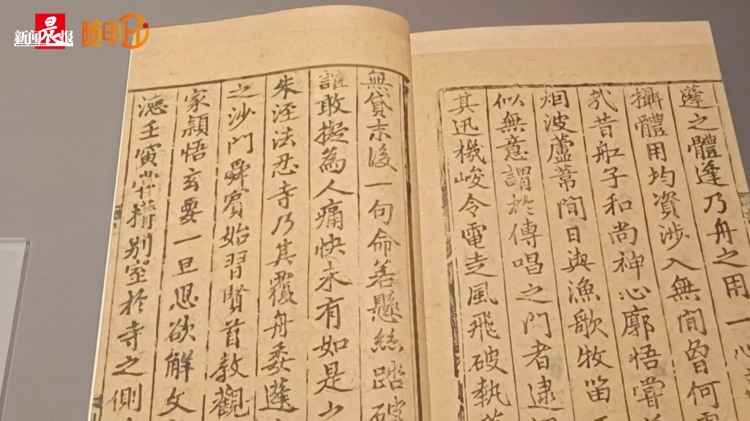 新闻晨报 随申Hi
蓬之體蓬乃舟之用一心
攝體用均資涉入無間曾何
㦲昔舩子和尚神心廓悟嘗
烟波蘆葦間日與漁歌牧笛
似無意謂於傳唱之門者逮
其迅機峻令電走風飛破執
無貸末後一句命若懸絲踏破
誰敢擬為人痛快未有如是
朱涇法忍寺乃其覆舟委蓬
之沙門舜賓始習賢首教觀
家頴悟玄要一旦思欲解文
德壬寅搆別室於寺之側